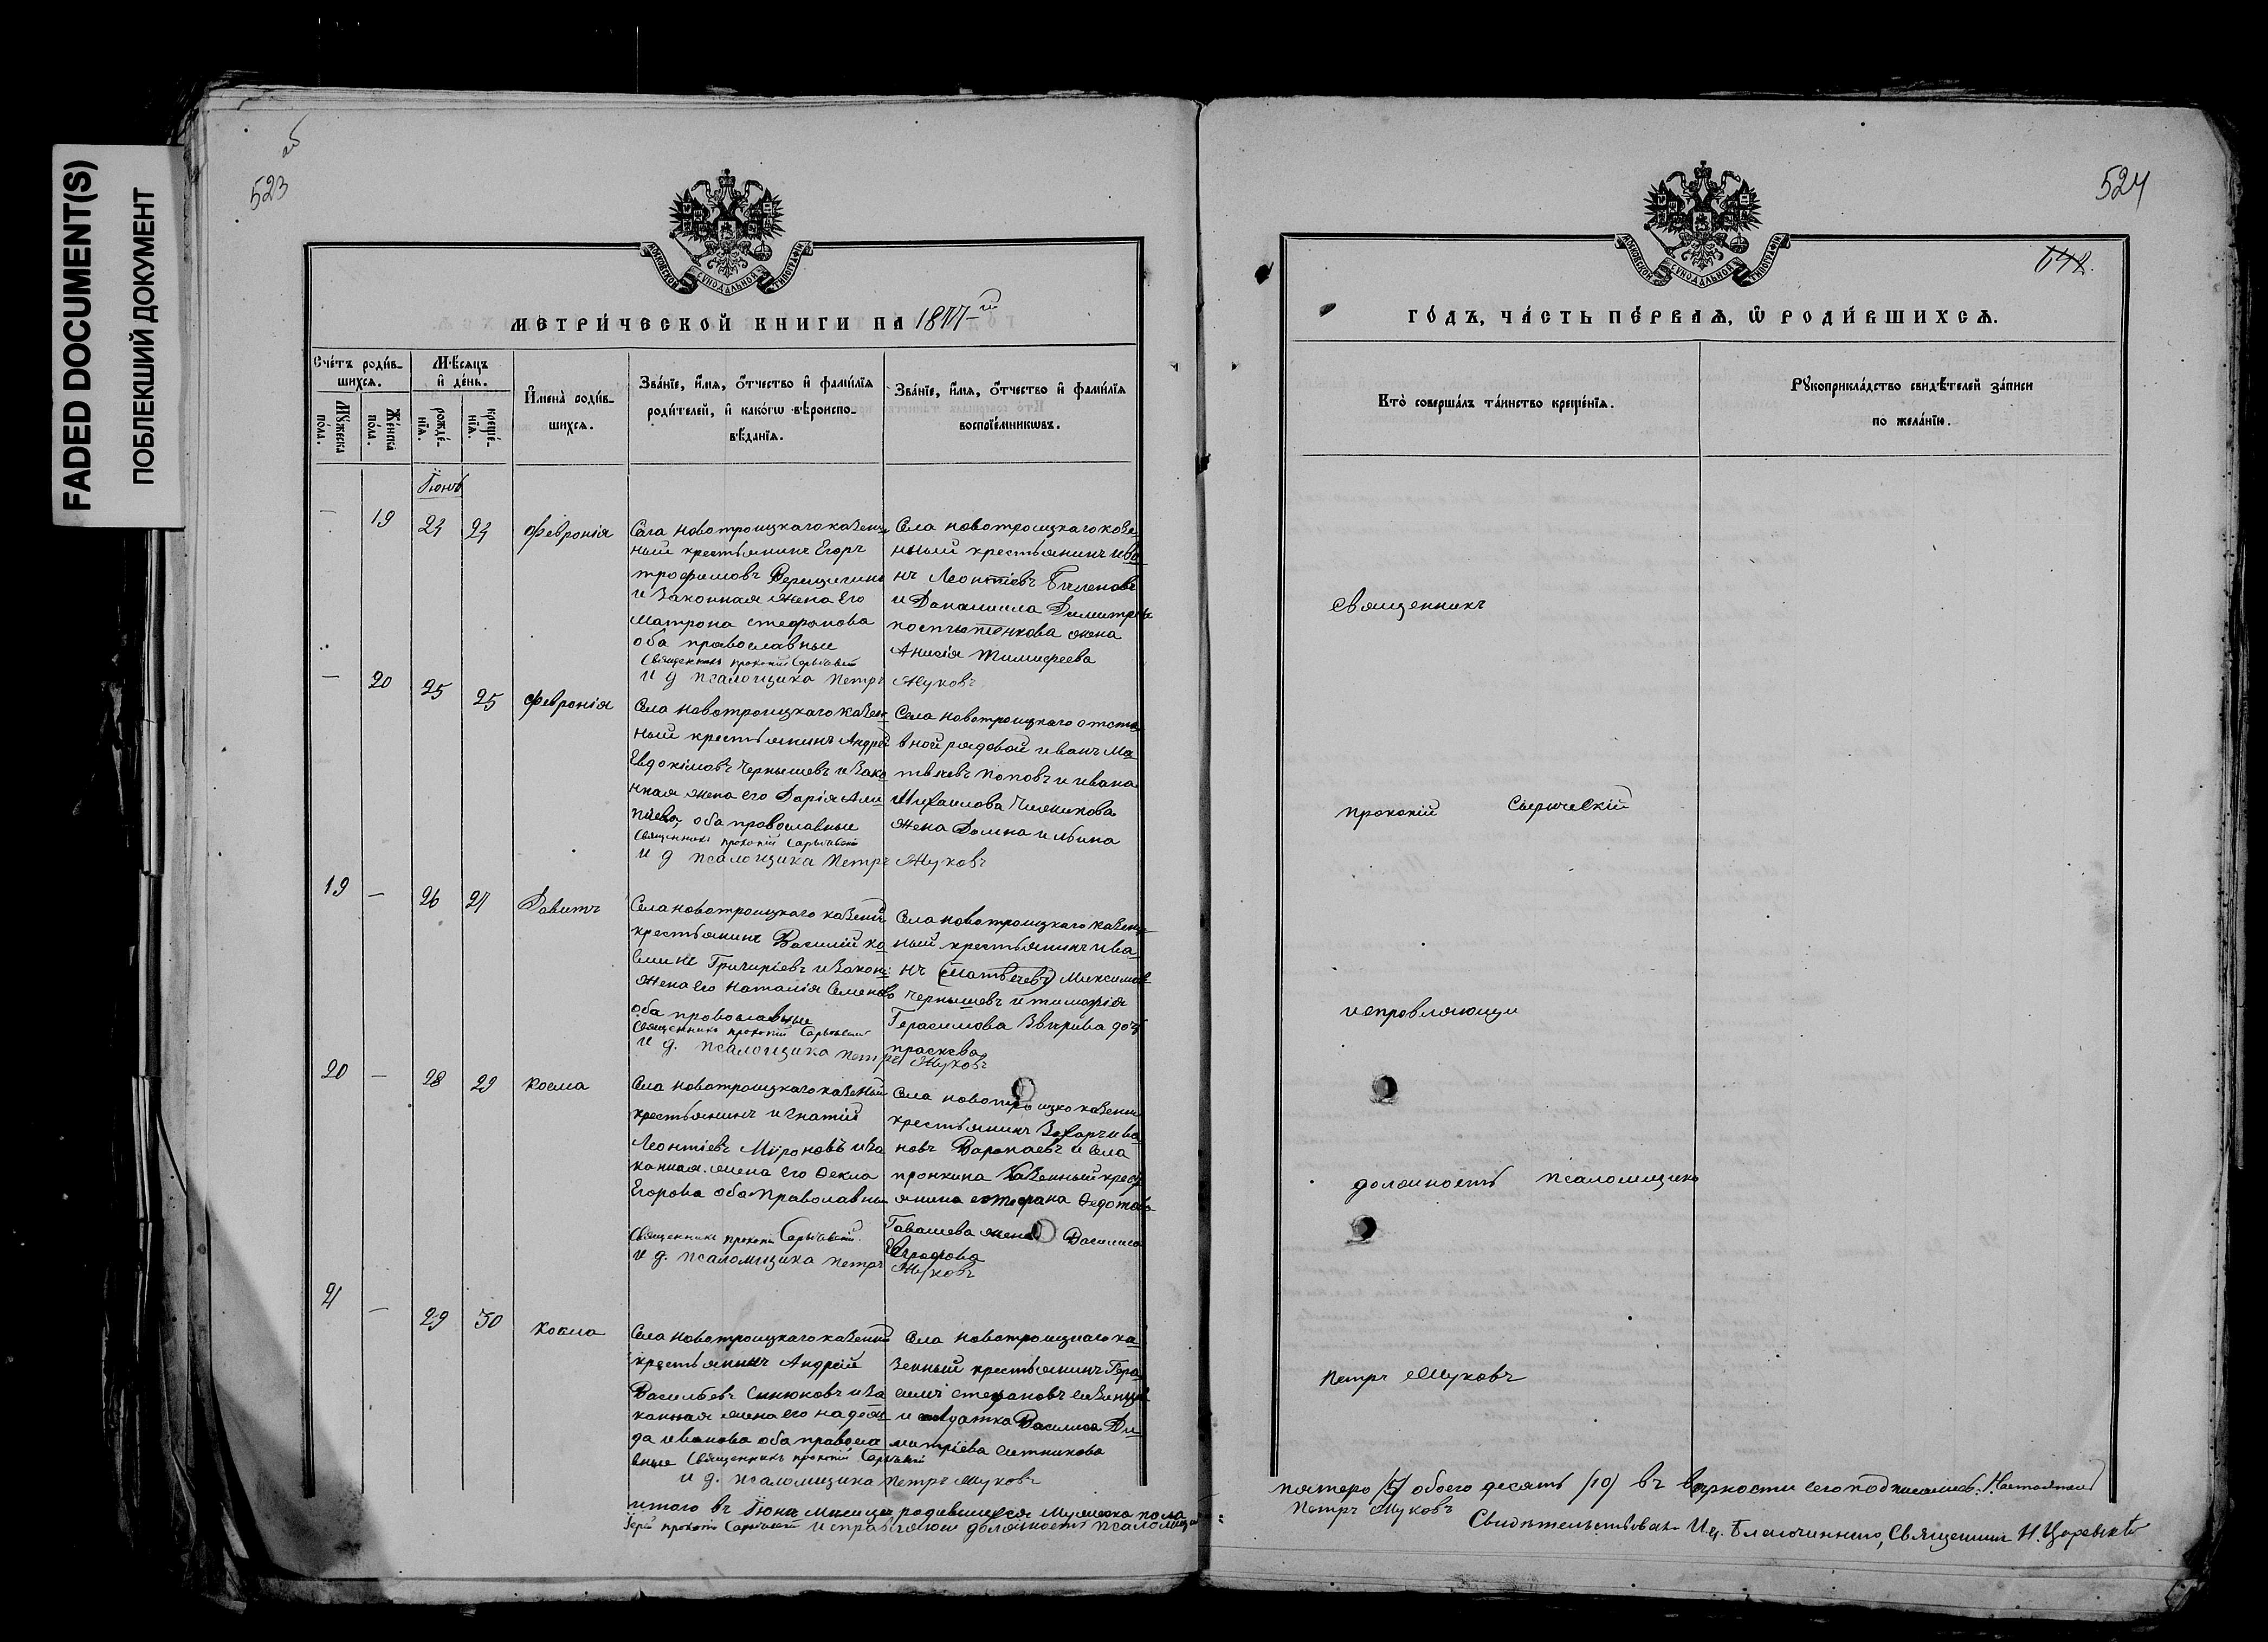 FADED DOCUMENT(S)
ПОБЛЕКШИЙ ДОКУМЕНТ
523
МОСКОВСКОЙ СѴНОДАЛЬНОЙ ТИПОГРАФІИ
МЕТРИ́ЧЕСКОЙ КНИГИ НА 1877-й
Сче́тъ роди́в-
шихся.
Мѣ́сяцъ
и҆ де́нь.
Мꙋ́жеска
по́ла.
Же́нска
по́ла.
рожде́-
нїѧ.
креще́-
нїѧ.
И҆мена̀ роди́в-
шихся.
Зва́нїе, и҆́мѧ, ѻ҆́тчество и҆ фами́лїѧ
роди́телей, и҆ како́гѡ вѣроиспо-
вѣ́данїѧ.
Зва́нїе, и҆́мѧ, ѻ҆́тчество и҆ фами́лїѧ
воспрїе́мникѡвъ.
Іюнь
— 19 24 24 Февронія
Села Новотроицкаго казен-
ный крестьянинъ Егоръ
трофимовъ Верещагинъ
и Законная жена Его
Матрона стефанова
оба православные
Священникъ прокопій
и д псаломщика Петръ Жуковъ
Села новотроицкаго казе-
нный крестьянинъ ива
нъ Леонтіевъ
и Димитрія
жена
Анисія Тимофеева
— 20 25 25 Февронія
Села новотроицкаго казен
ный крестьянинъ Андрей
Евдокимовъ Чернышевъ и Зако
нная жена его Дарія Али
пиева, оба православные
Священникъ прокопій
и д псаломщика Петръ Жуковъ
Села новотроицкаго отста
вной рядовой иванъ Ма
твѣевъ Поповъ и ивана
Михаилова
жена Домна ильина
19 — 26 27 Давитъ
Села новотроицкаго казенн
крестьянинъ Василій ко
Григоріевъ и Закон:
жена его Наталія Семенова
оба православные
Священникъ прокопій
и д. псаломщика петръ Жуковъ
Села новотроицкаго казен-
ный крестьянинъ ива
нъ (Матвѣевъ) Максимов
Чернышевъ и тимофія
Герасимова дочь
праскева
20 — 28 29 Косма
Села новотроицкаго казеный
крестьянинъ игнатій
Леонтіевъ Мироновъ и За
конная жена его Ѳекла
Егорова оба православны
Священникъ прокопій
и д. псаломщика петръ Жуковъ
Села новотроицко казенн
крестьянинъ Захаръ ива
новъ Варопаевъ и Села
пронкина Казенный крест
янина стефана Ѳедотова
жена Василиса
21 — 29 30 Косма
Села новотроицкаго казенн
крестьянинъ Андрей
Васильевъ Синюковъ и За
конная жена его надеж
да иванова оба правосла
вные Священникъ прокопій
и д. псаломщика петръ жуковъ
Села новотроицкаго ка
зенный крестьянинъ Гера
симъ стефановъ
и солдатка Василиса Ди
митріева ситникова
итого въ Іюнѣ месяце родившихся Мужеска пола
Іерей прокопій исправляющ должность псаломщ
524
642.
МОСКОВСКОЙ СѴНОДАЛЬНОЙ ТИПОГРАФІИ
ГО́ДЪ, ЧА́СТЬ ПЕ́РВАѦ, Ѡ҆ РОДИ́ВШИХСѦ.
Кто̀ соверша́лъ та́инство креще́нїѧ.
Рꙋкоприкла́дство свидѣ́телей за́писи
по жела́нїю.
Священникъ
прокопій
исправляющи
должность псаломщика
петръ Жуковъ
пятеро /5/ обоего десять /10/ въ верности сего подписались:
Петръ Жуковъ
Свидѣтельствовалъ И.д. Благочиннаго, Священникъ Н. Царевскій